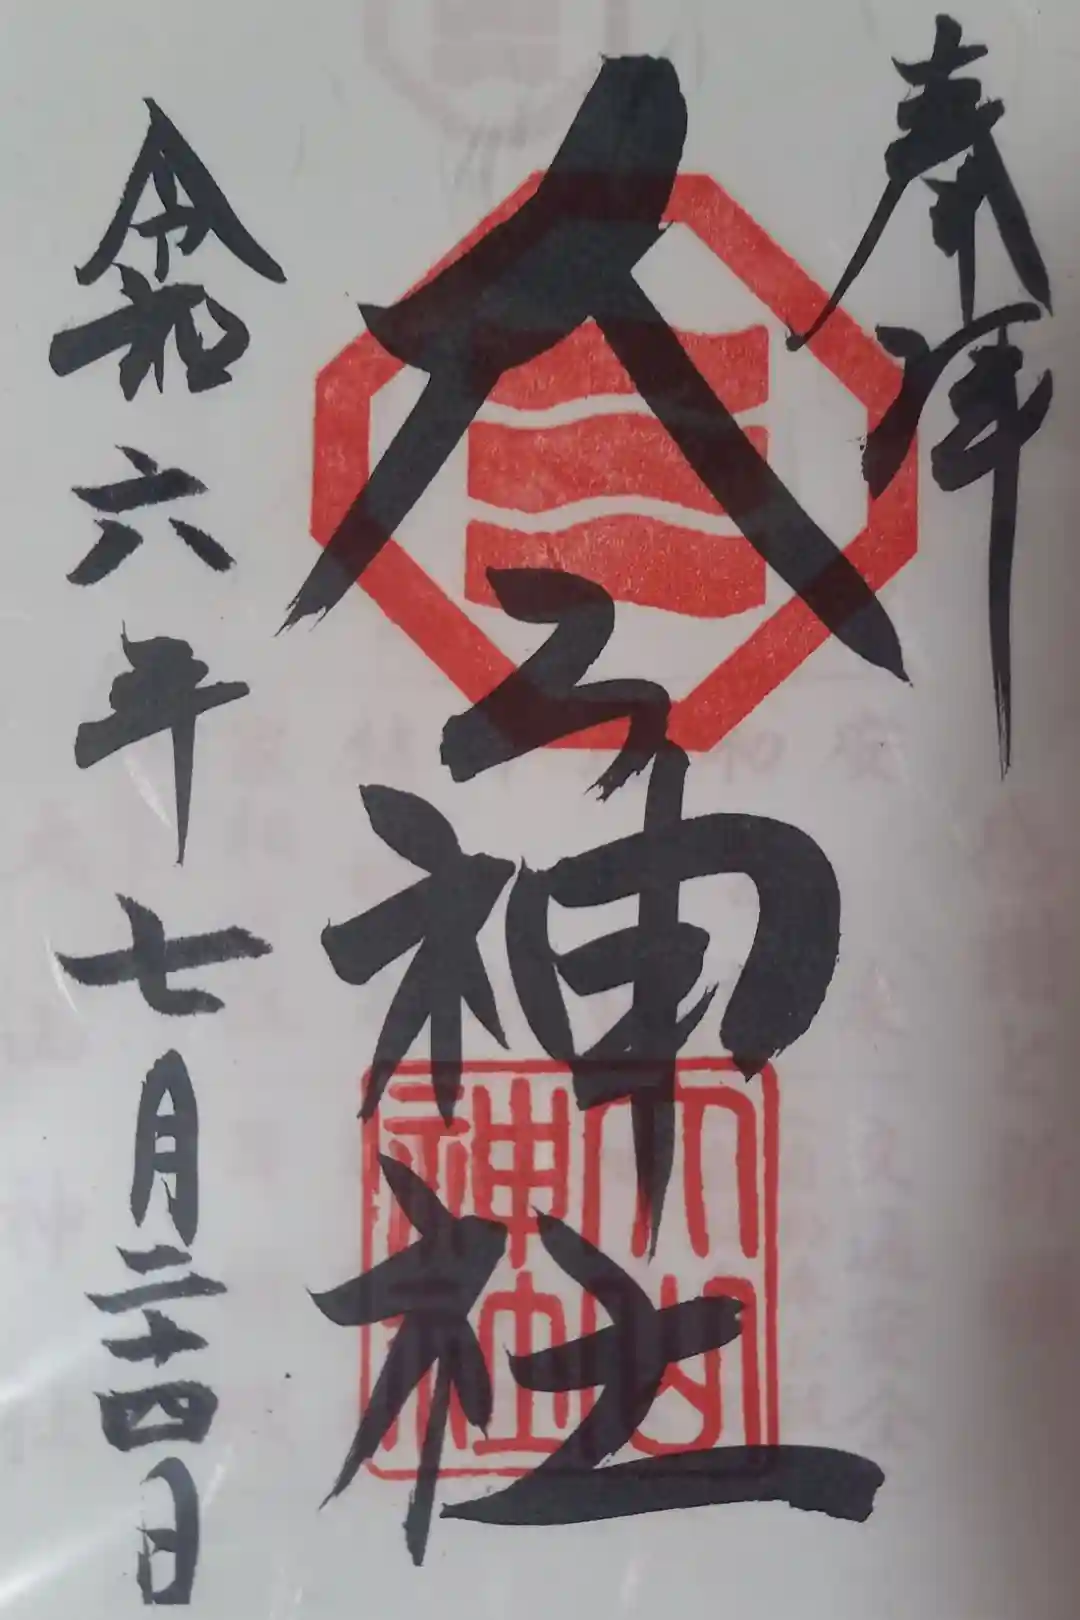 奉拝
大山神社
令和六年七月二十四日
大山
神社